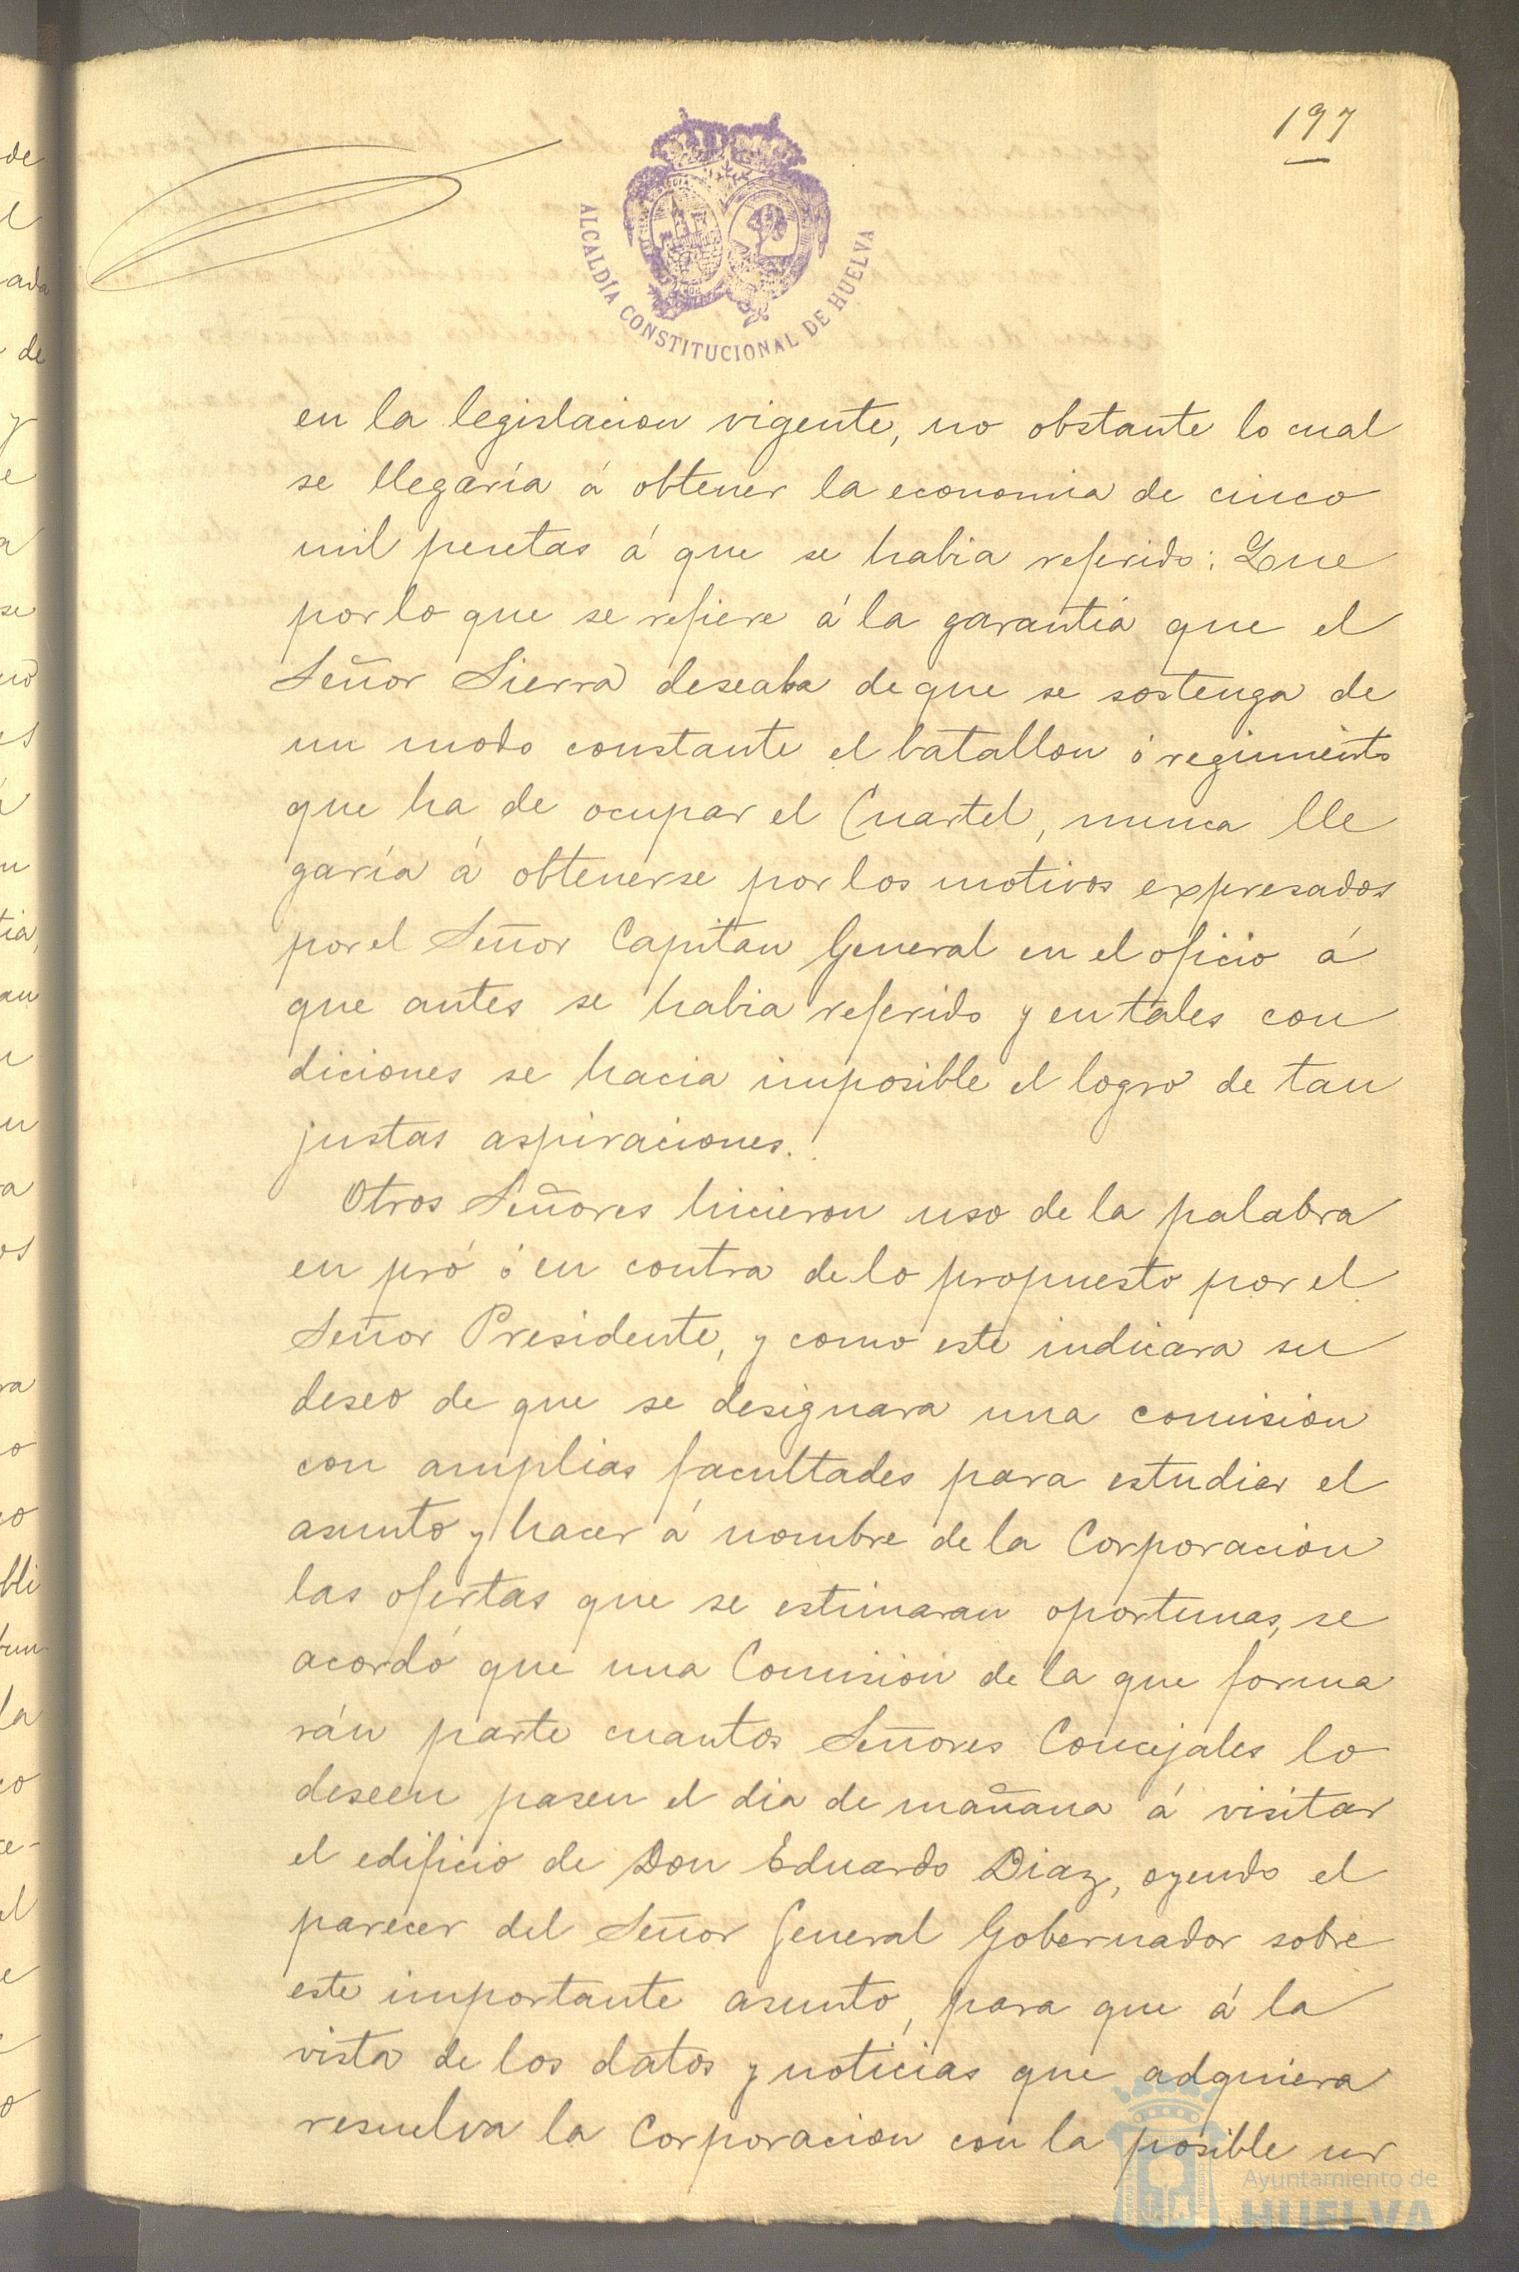 197
ALCALDÍA CONSTITUCIONAL DE HUELVA
en la legislacion vigente, no obstante lo cual
se llegaría á obtener la economia de cinco
mil pesetas á que se habia referido: Que
por lo que se refiere á la garantia que el
Señor Sierra deseaba de que se sostenga de
un modo constante el batallon ó regimiento
que ha de ocupar el Cuartel, nunca lle
garía á obtenerse por los motivos expresados
por el Señor Capitan General en el oficio á
que antes se habia referido y en tales con
diciones se hacia imposible el logro de tan
justas aspiraciones.
Otros Señores hicieron uso de la palabra
en pró ó en contra de lo propuesto por el
Señor Presidente, y como este indicara su
deseo de que se designara una comision
con amplias facultades para estudiar el
asunto y hacer á nombre de la Corporacion
las ofertas que se estimaran oportunas, se
acordó que una Comision de la que forma
rán parte cuantos Señores Concejales lo
deseen pasen el dia de mañana á visitar
el edificio de Don Eduardo Diaz, oyendo el
parecer del Señor General Gobernador sobre
este importante asunto, para que á la
vista de los datos y noticias que adquiera
resuelva la Corporacion con la posible ur
Ayuntamiento de
HUELVA